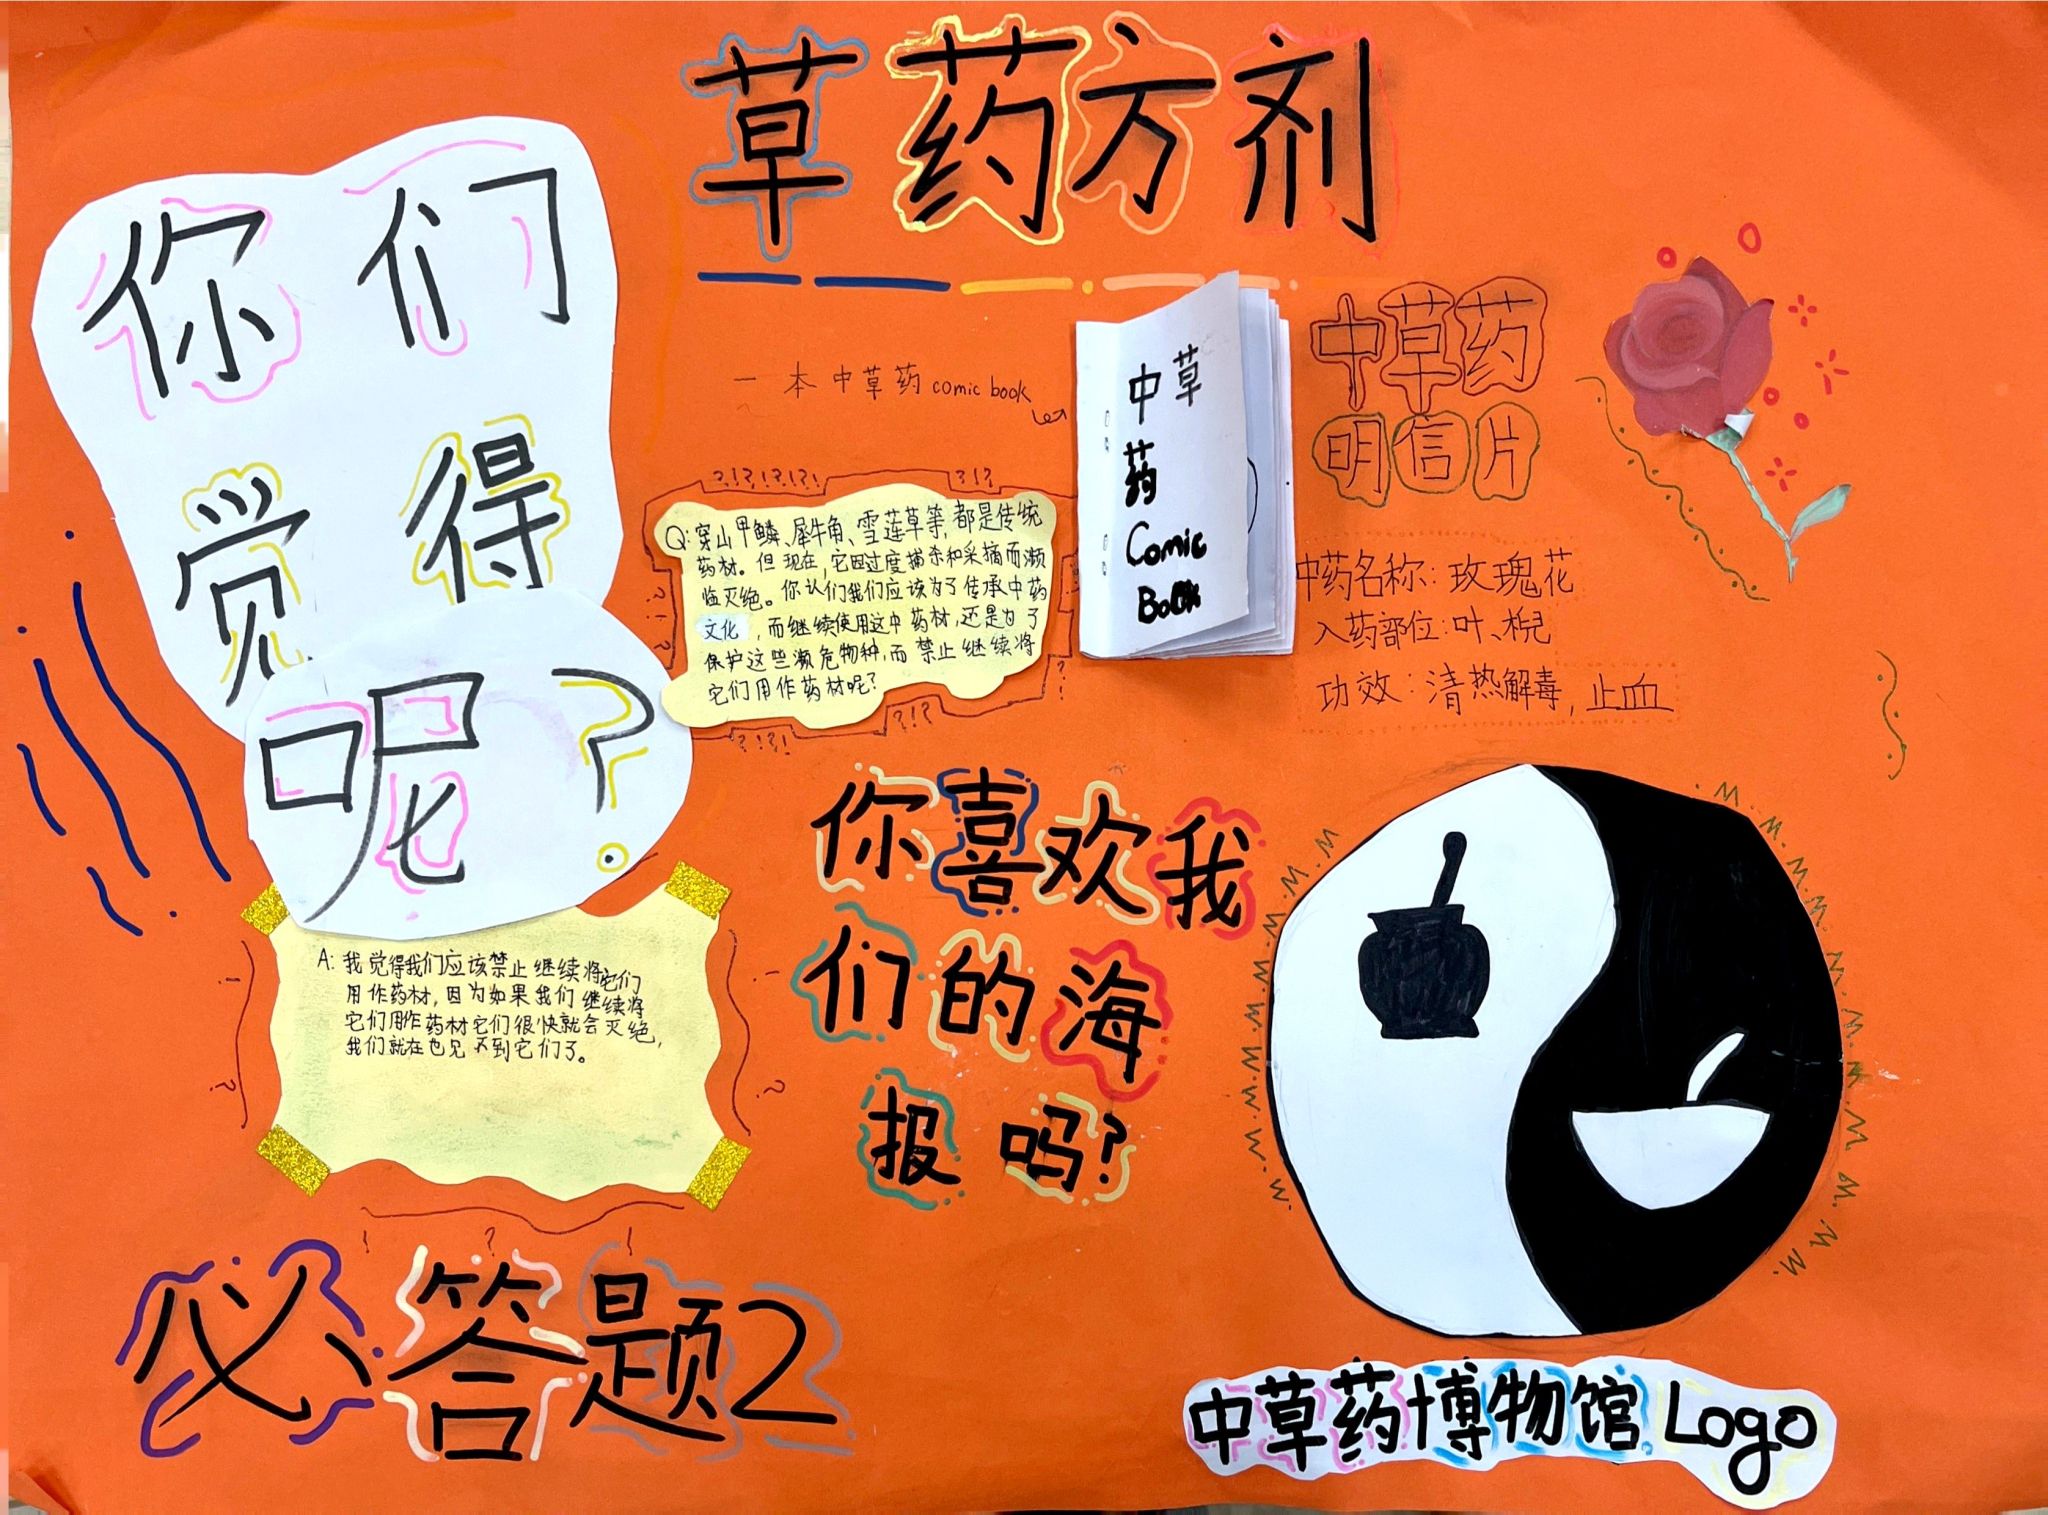 草药方剂
你们
觉得
呢?
一本中草药 comic book
中草
药
Comic
Book
中草药
明信片
Q: 穿山甲鳞、犀牛角、雪莲草等,都是传统
药材。但现在,它因过度捕杀和采摘而濒
临灭绝。你认们我们应该为了传承中药
文化,而继续使用这中药材,还是为了
保护这些濒危物种,而禁止继续将
它们用作药材呢?
中药名称:玫瑰花
入药部位:叶、
功效:清热解毒,止血
你喜欢我
们的海
报吗?
A: 我觉得我们应该禁止继续将它们
用作药材,因为如果我们继续将
它们用作药材它们很快就会灭绝,
我们就在也见不到它们了。
必答题2
中草药博物馆Logo